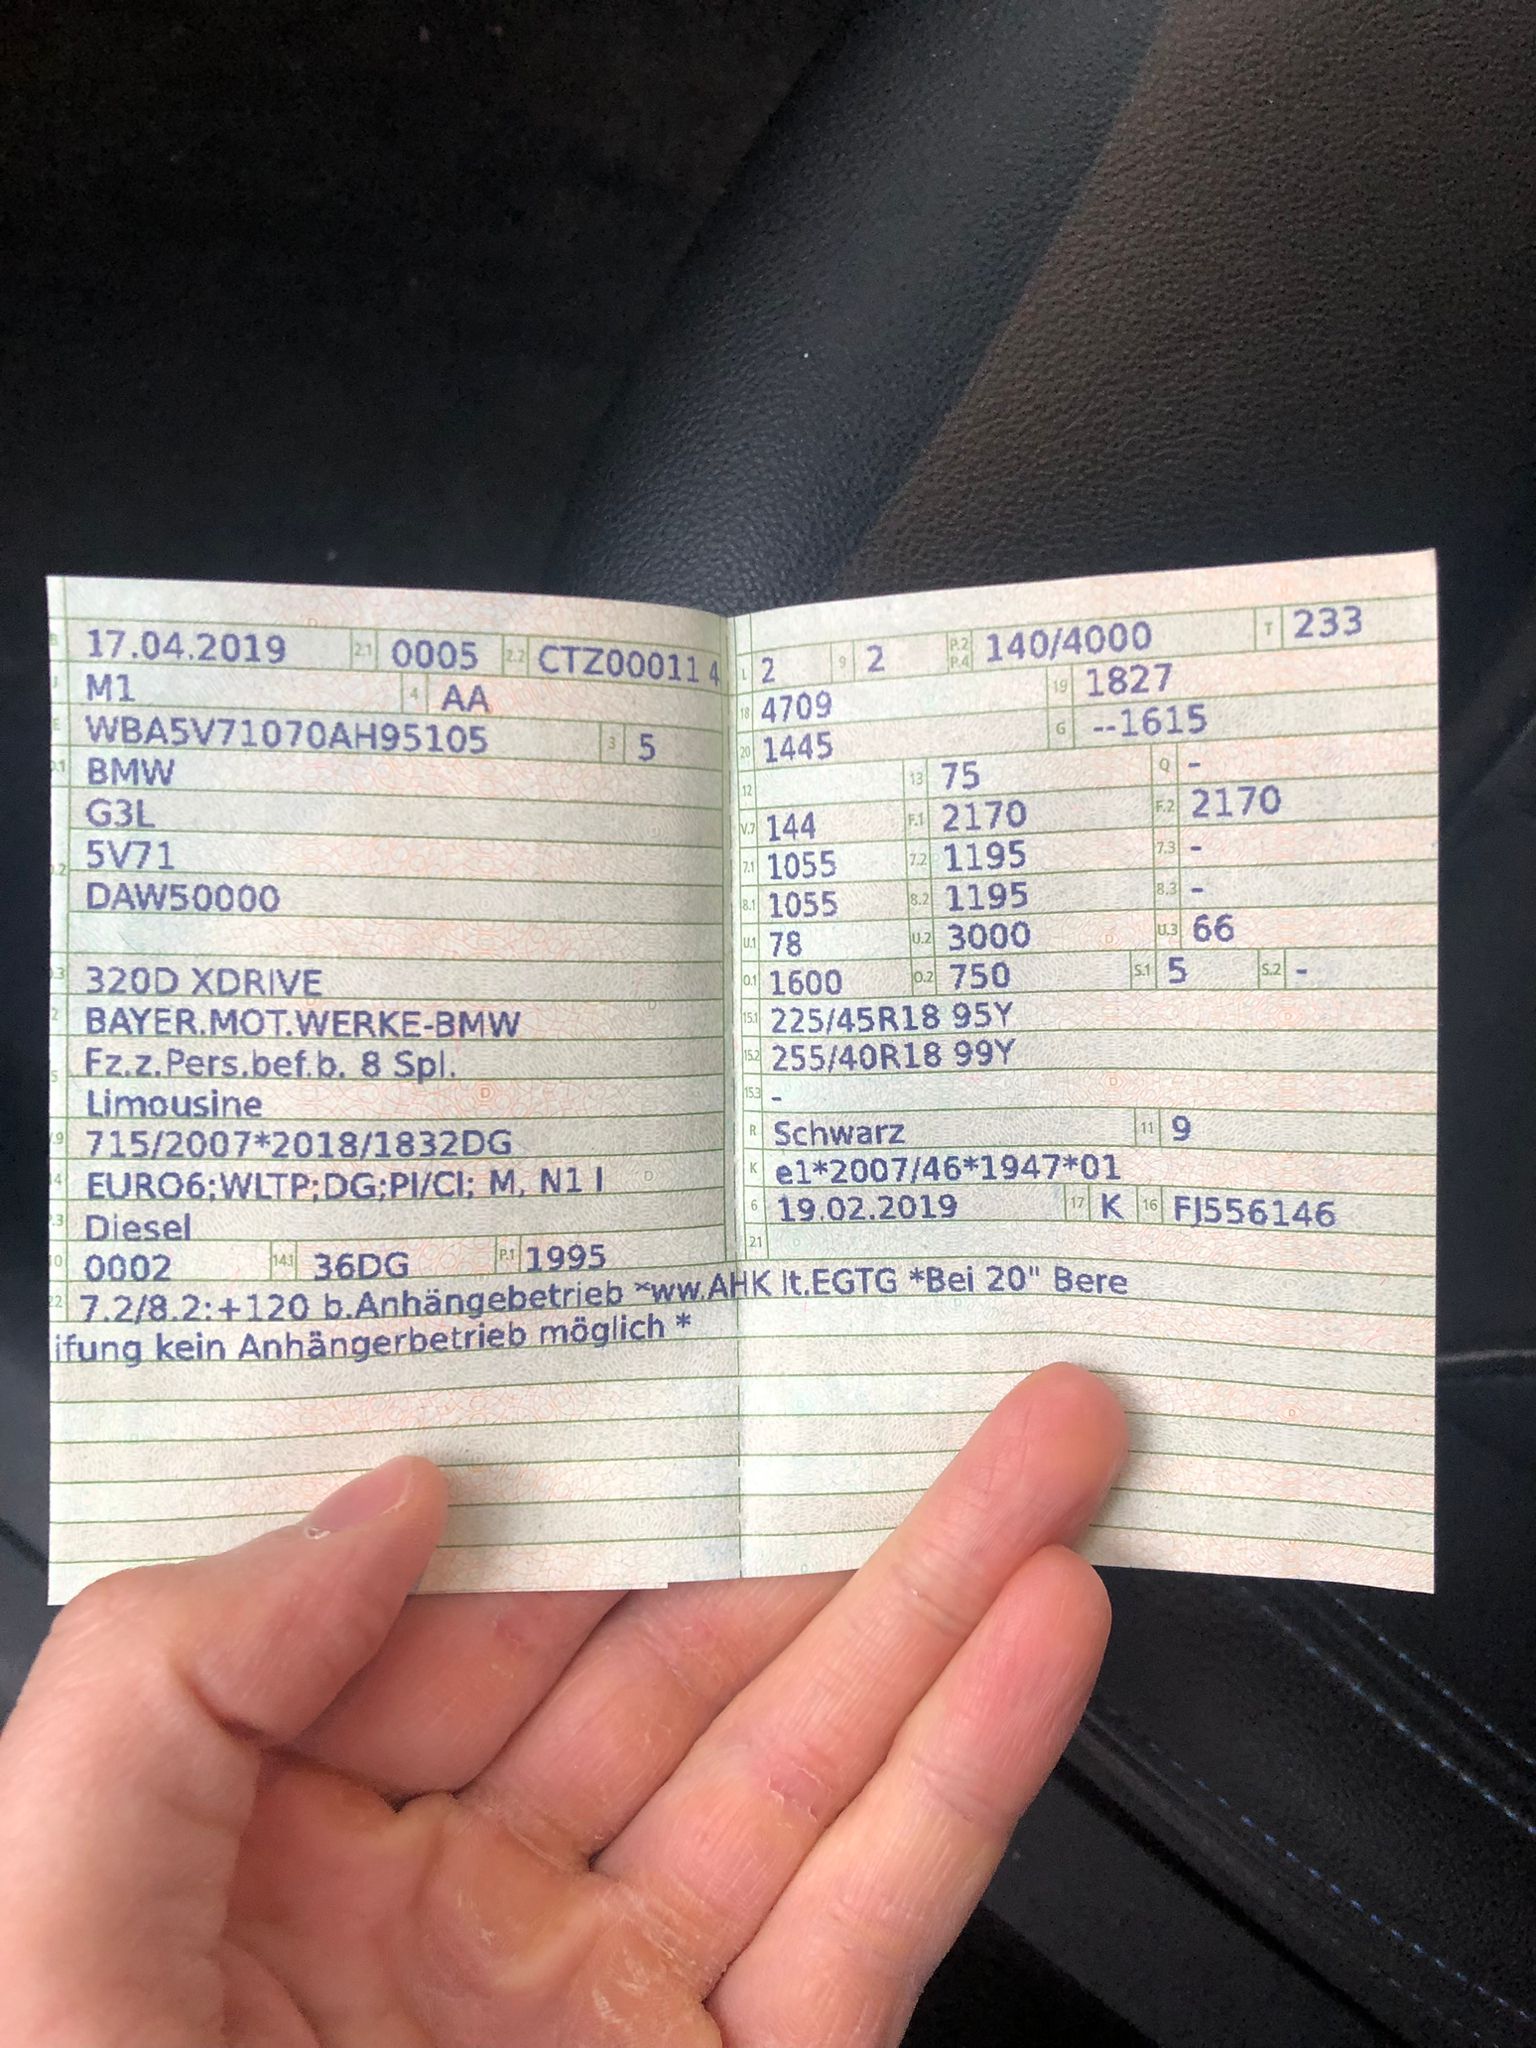 B 17.04.2019 2.1 0005 2.2 CTZ00011 4
J M1 4 AA
E WBA5V71070AH95105 3 5
D.1 BMW
G3L
D.2 5V71
DAW50000
D.3 320D XDRIVE
2 BAYER.MOT.WERKE-BMW
5 Fz.z.Pers.bef.b. 8 Spl.
Limousine
V.9 715/2007*2018/1832DG
14 EURO6;WLTP;DG;PI/CI; M, N1 I
P.3 Diesel
10 0002 14.1 36DG P.1 1995
L 2 9 2 P.2 P.4 140/4000 T 233
18 4709 19 1827
20 1445 G --1615
12 13 75 Q -
V.7 144 F.1 2170 F.2 2170
7.1 1055 7.2 1195 7.3 -
8.1 1055 8.2 1195 8.3 -
U.1 78 U.2 3000 U.3 66
O.1 1600 O.2 750 S.1 5 S.2 -
15.1 225/45R18 95Y
15.2 255/40R18 99Y
15.3 -
R Schwarz 11 9
K e1*2007/46*1947*01
6 19.02.2019 17 K 16 FJ556146
21
22 7.2/8.2:+120 b.Anhängebetrieb *ww.AHK lt.EGTG *Bei 20" Bere
ifung kein Anhängerbetrieb möglich *